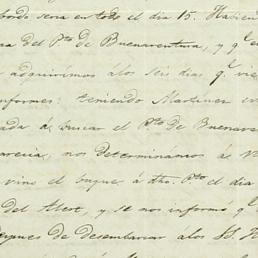 bordo seria en todo el dia 15. Haciend
na del Pto. de Buenaventura, y qe. e
adquirimos á los seis dias qe. vie
informes: teniendo Martinez en
ada á buscar el Pto. de Buenave
parecia, nos determinámos á V
vino el buque á dho. Pto. el dia
del Abert, y se nos informó qe.
espues de desembarcar á los SS. H